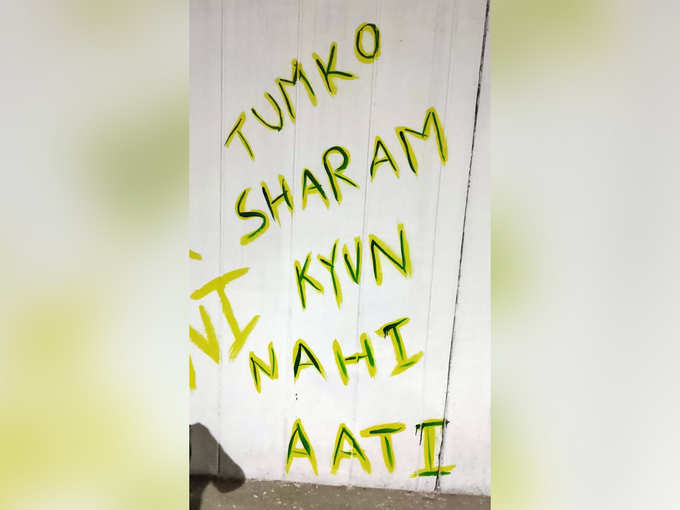 TUMKO
SHARAM
KYUN
NAHI
AATI